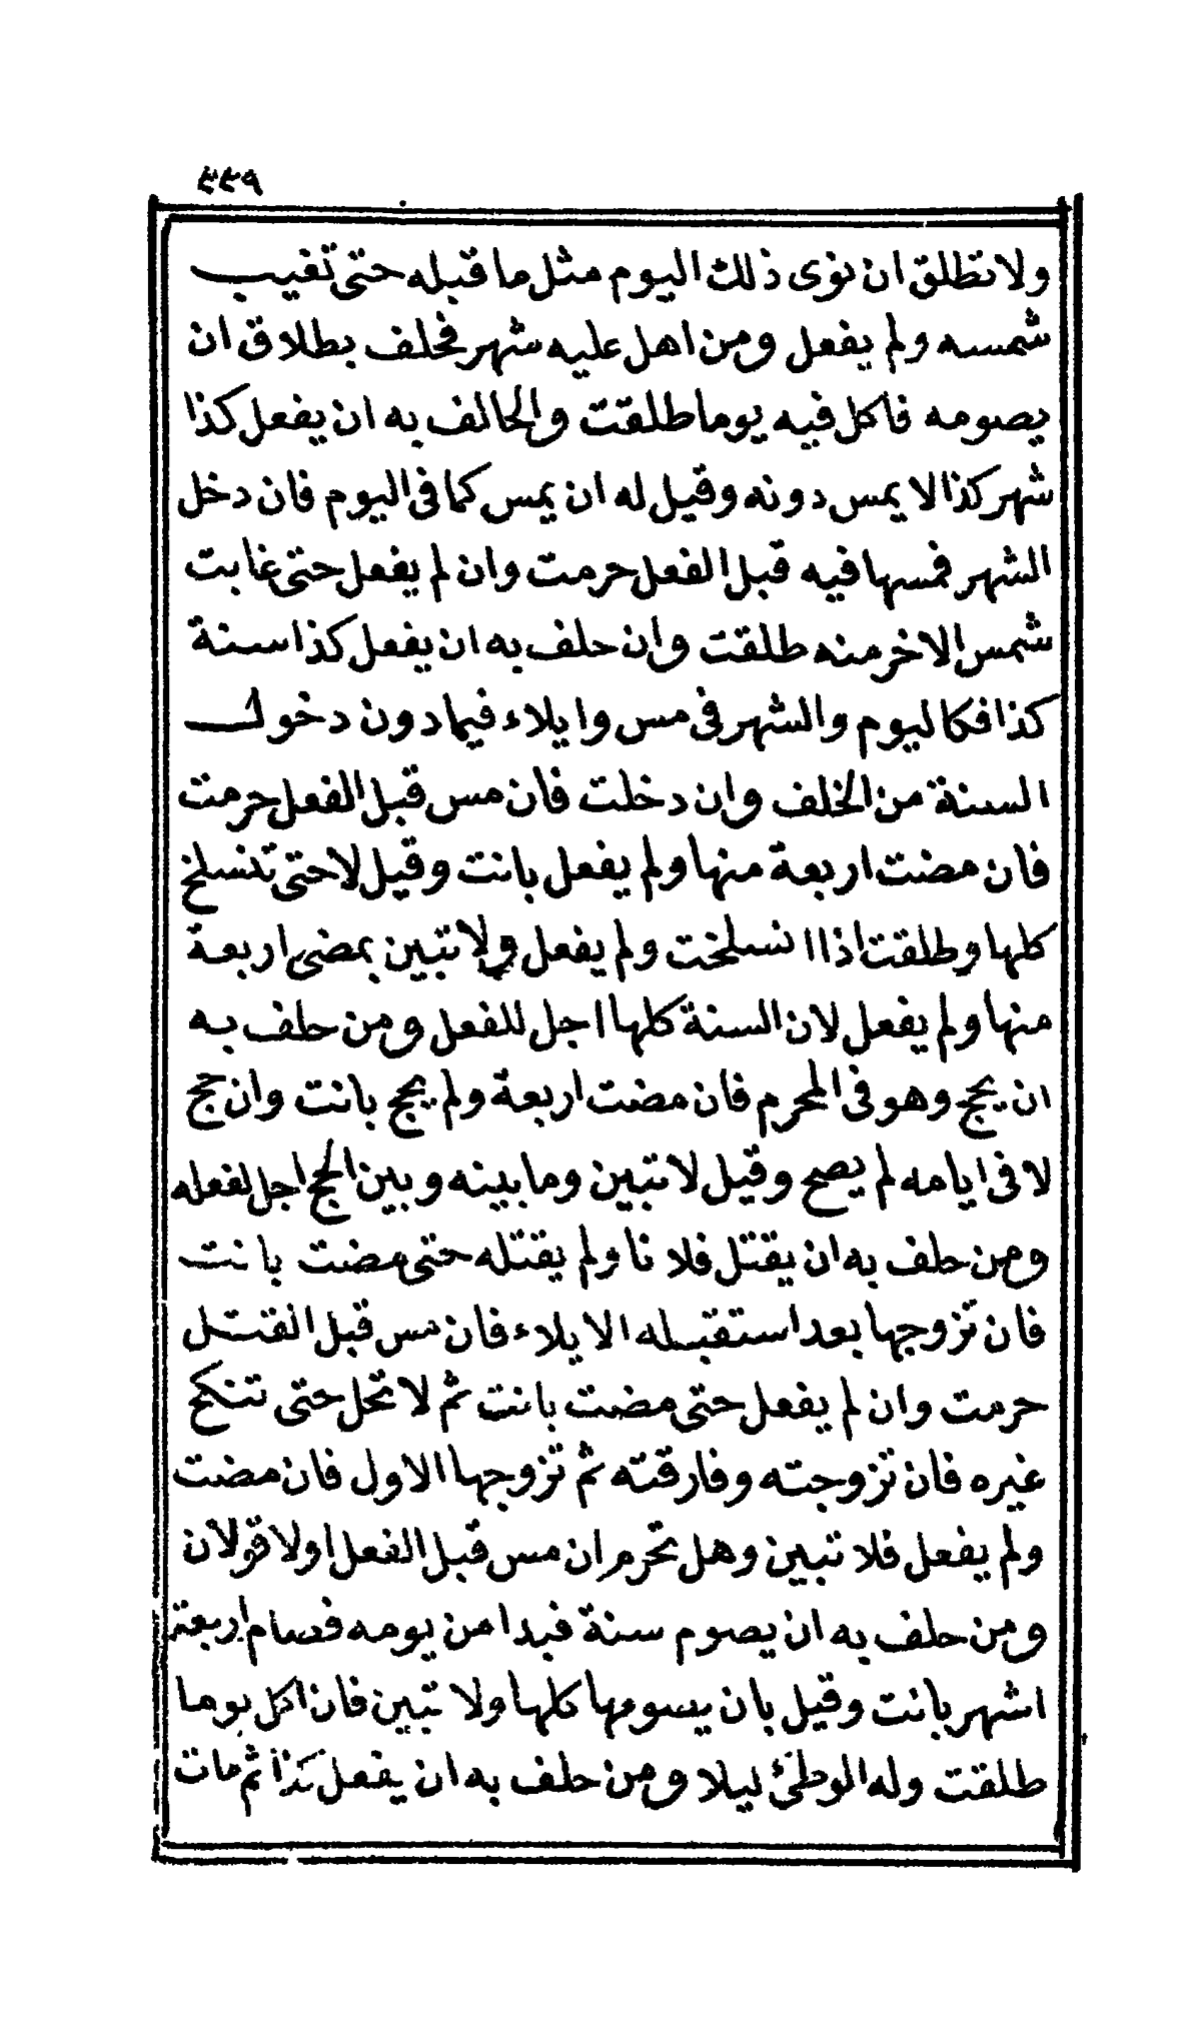 ٣٣٩
ولا تطلق ان نوى ذلك اليوم مثل ما قبله حتى تغيب
شمسه ولم يفعل ومن اهل عليه شهر فحلف بطلاق ان
يصومه فاكل فيه يوما طلقت والحالف به ان يفعل كذا
شهر كذا لا يمس دونه وقيل له ان يمس كما فى اليوم فان دخل
الشهر فمسها فيه قبل الفعل حرمت وان لم يفعل حتى غابت
شمس الاخر منه طلقت وان حلف به ان يفعل كذا سنة
كذا فكاليوم والشهر فى مس وايلاء فيما دون دخول
السنة من الخلف وان دخلت فان مس قبل الفعل حرمت
فان مضت اربعة منها ولم يفعل بانت وقيل لا حتى تنسلخ
كلها وطلقت اذا انسلخت ولم يفعل ولا تبين بمضى اربعة
منها ولم يفعل لان السنة كلها اجل للفعل ومن حلف به
ان يحج وهو فى المحرم فان مضت اربعة ولم يحج بانت وان حج
لا فى ايامه لم يصح وقيل لا تبين وما بينه وبين الحج اجل لفعله
ومن حلف به ان يقتل فلانا ولم يقتله حتى مضت بانت
فان تزوجها بعد استقبله الايلاء فان مس قبل القتل
حرمت وان لم يفعل حتى مضت بانت ثم لا تحل حتى تنكح
غيره فان تزوجته وفارقته ثم تزوجها الاول فان مضت
ولم يفعل فلا تبين وهل تحرم ان مس قبل الفعل اولا قولان
ومن حلف به ان يصوم سنة فبدا من يومه فصام اربعة
اشهر بانت وقيل بان يسومها كلها ولا تبين فان اكل يوما
طلقت وله الوطئ ليلا ومن حلف به ان يفعل كذا ثم مات